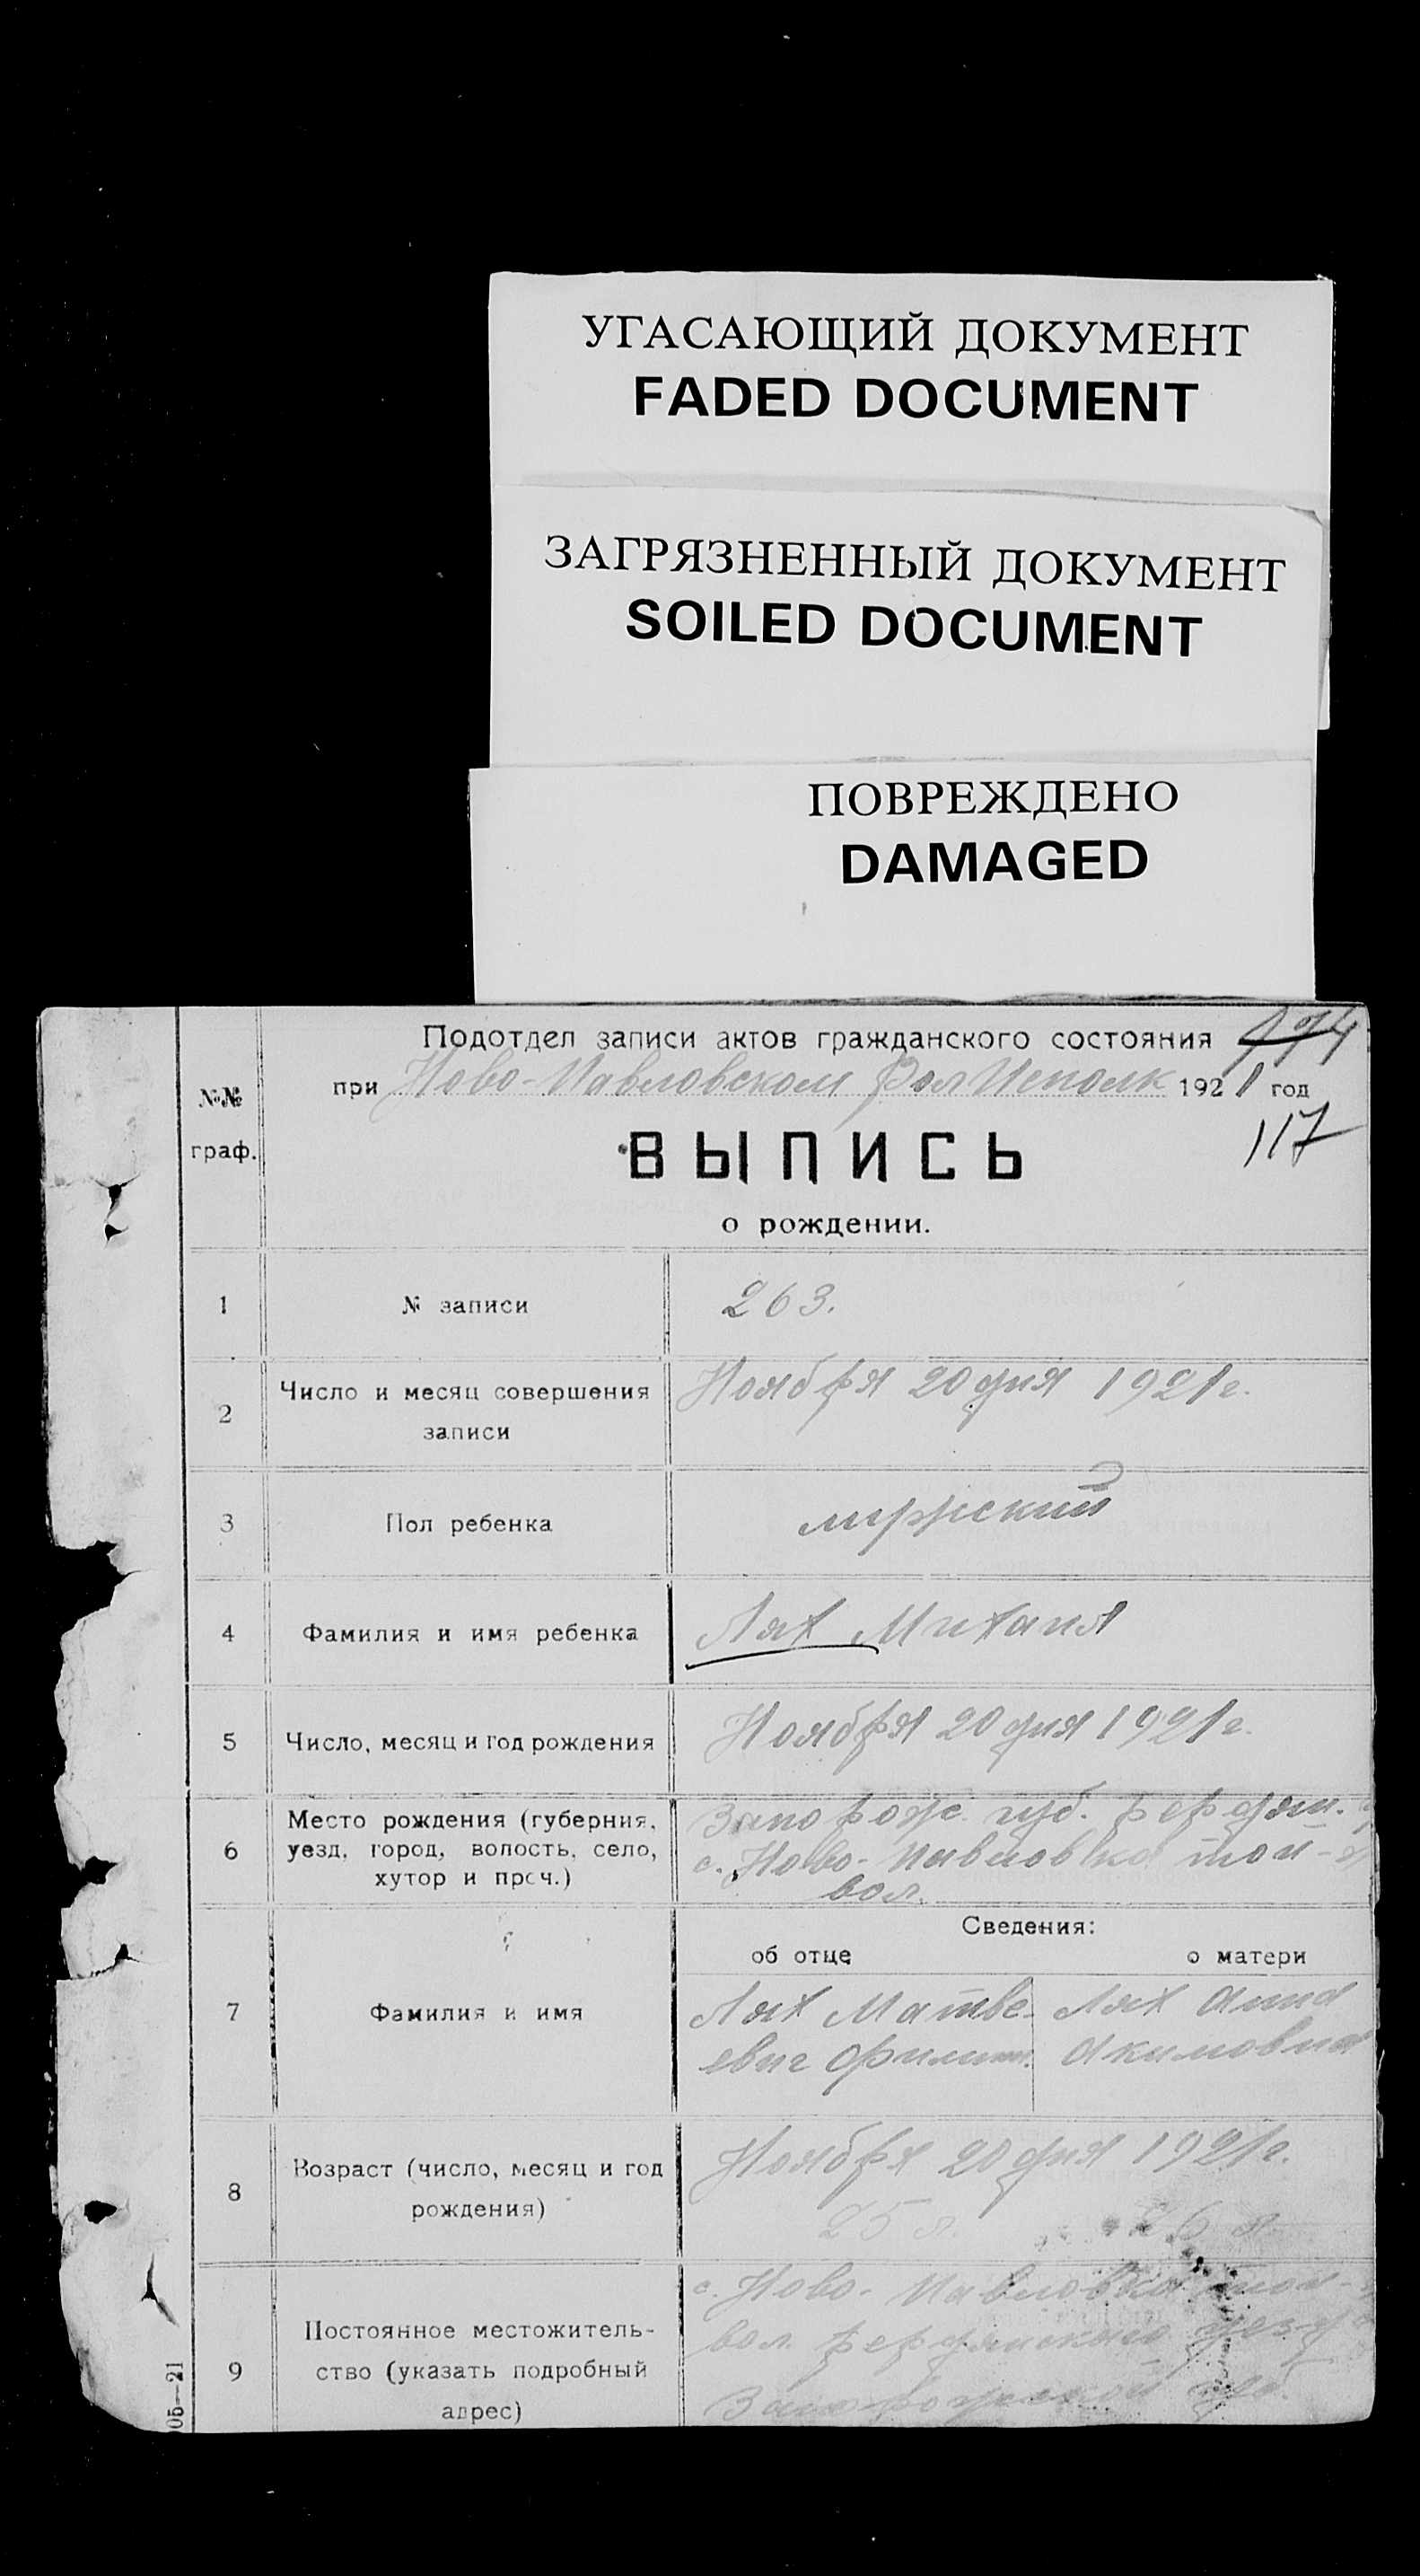 УГАСАЮЩИЙ ДОКУМЕНТ
FADED DOCUMENT
ЗАГРЯЗНЕННЫЙ ДОКУМЕНТ
SOILED DOCUMENT
ПОВРЕЖДЕНО
DAMAGED
Подотдел записи актов гражданского состояния
при Ново-Павловском ВолИсполк 1921 год
117
№№
граф.
ВЫПИСЬ
о рождении.
1 № записи 263.
2 Число и месяц совершения Ноября 20 дня 1921 г.
записи
3 Пол ребенка мужской
4 Фамилия и имя ребенка Лях Михаил
5 Число, месяц и год рождения Ноября 20 дня 1921 г.
6 Место рождения (губерния, Запорож. губ. Бердян.
уезд, город, волость, село, с. Ново-Павловка той-
хутор и проч.) вол.
Сведения:
об отце о матери
7 Фамилия и имя
Лях Матве- Лях Анна
евич Филипп. Акимовна
8 Возраст (число, месяц и год Ноября 20 дня 1921 г.
рождения) 25 л. 26 л.
9 Постоянное местожитель- с. Ново-Павловка той-
ство (указать подробный вол. Бердянского уезда
адрес) Запорожской губ.
05—21